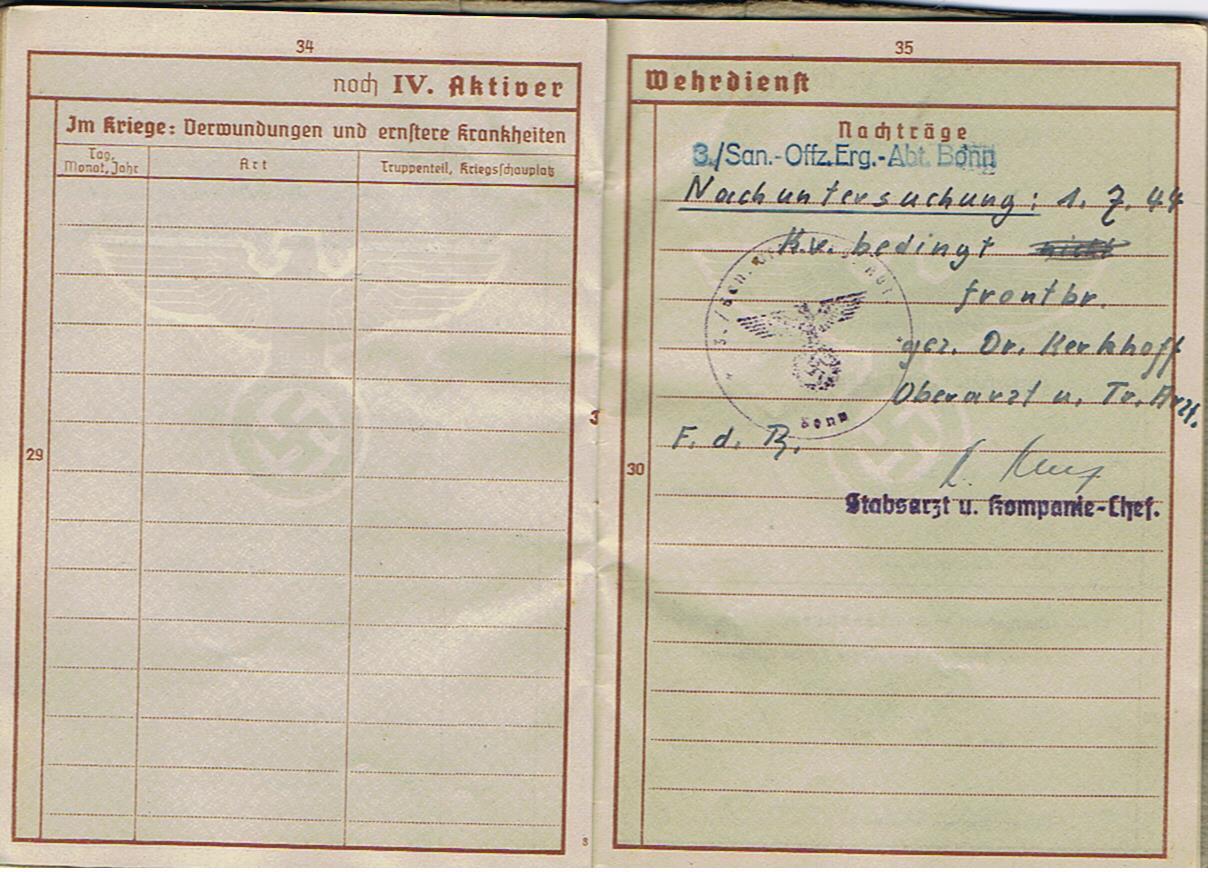 34
noch IV. Aktiver
Im Kriege: Verwundungen und ernstere Krankheiten
Tag, Monat, Jahr
Art
Truppenteil, Kriegsschauplatz
29
3
8
35
Wehrdienst
Nachträge
3./San.-Offz.Erg.-Abt. Bonn
Nachuntersuchung: 1. 7. 44
K.v. bedingt
frontbr.
gez. Dr. Kerkhoff
Oberarzt u. Tr. Arzt.
F. d. R.
Stabsarzt u. Kompanie-Chef.
30
3./San.
Bonn